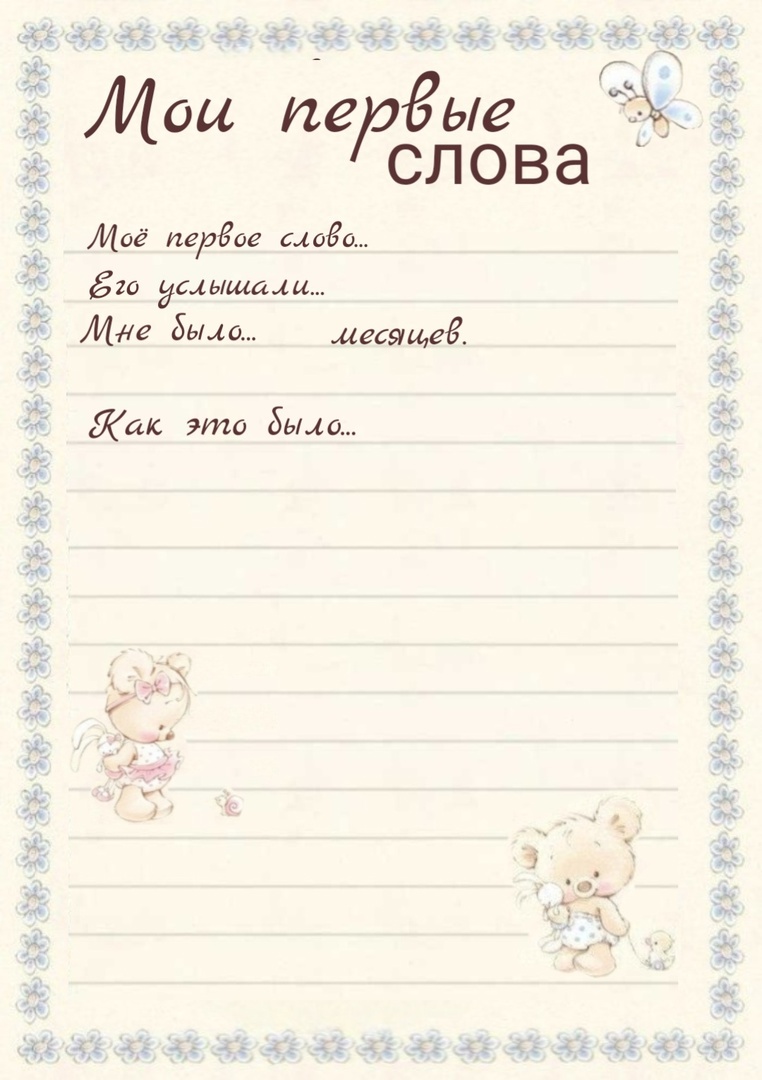 Мои первые
слова
Моё первое слово...
Его услышали...
Мне было... месяцев.
Как это было...